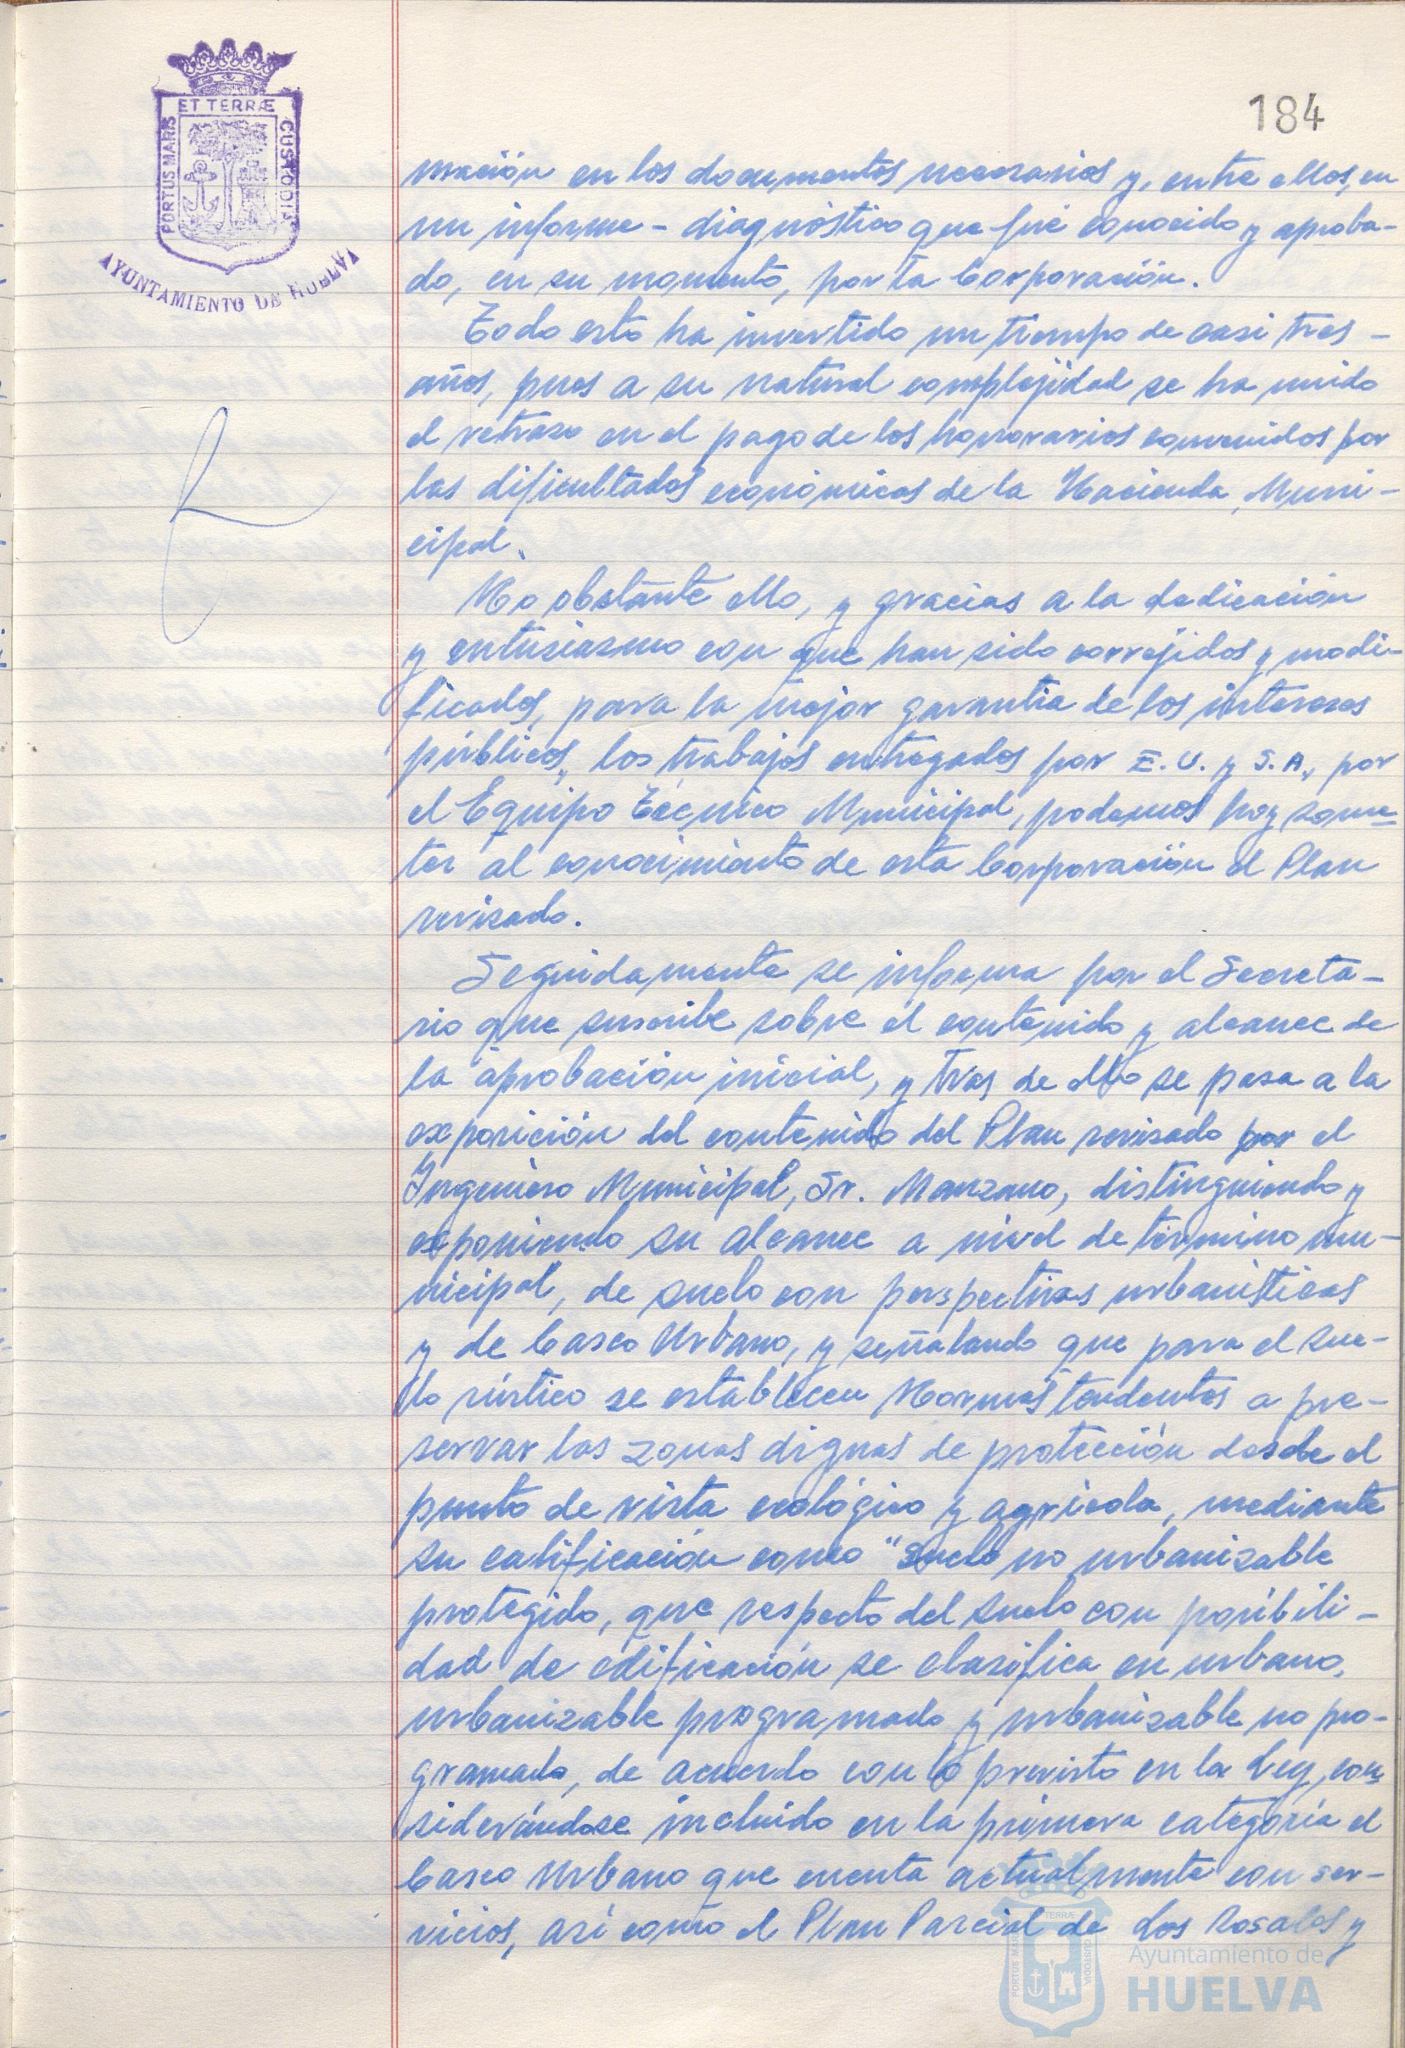 ET TERRÆ
PORTUS MARIS
CUSTODIA
AYUNTAMIENTO DE HUELVA
184
mación en los documentos necesarios y, entre ellos, en
un informe - diagnóstico que fué conocido y aproba-
do, en su momento, por la Corporación.
Todo esto ha invertido un tiempo de casi tres -
años, pues a su natural complejidad se ha unido
el retraso en el pago de los honorarios convenidos por
las dificultades económicas de la Hacienda Muni-
cipal.
No obstante ello, y gracias a la dedicación
y entusiasmo con que han sido corregidos y modi-
ficados, para la mejor garantía de los intereses
públicos, los trabajos entregados por E.U. y S.A., por
el Equipo Técnico Municipal, podemos hoy some-
ter al conocimiento de esta Corporación el Plan
revisado.
Seguidamente se informa por el Secreta-
rio que suscribe sobre el contenido y alcance de
la aprobación inicial, y tras de ello se pasa a la
exposición del contenido del Plan revisado por el
Ingeniero Municipal, Sr. Manzano, distinguiendo y
exponiendo su alcance a nivel de término mu-
nicipal, de suelo con perspectivas urbanísticas
y de Casco Urbano, y señalando que para el sue-
lo rústico se establecen Normas tendentes a pre-
servar las zonas dignas de protección desde el
punto de vista ecológico y agrícola, mediante
su calificación como "Suelo no urbanizable
protegido, que respecto del suelo con posibili-
dad de edificación se clasifica en urbano,
urbanizable programado y urbanizable no pro-
gramado, de acuerdo con lo previsto en la Ley, con-
siderándose incluido en la primera categoría el
Casco Urbano que cuenta actualmente con ser-
vicios, así como el Plan Parcial de Los Rosales y
Ayuntamiento de
HUELVA